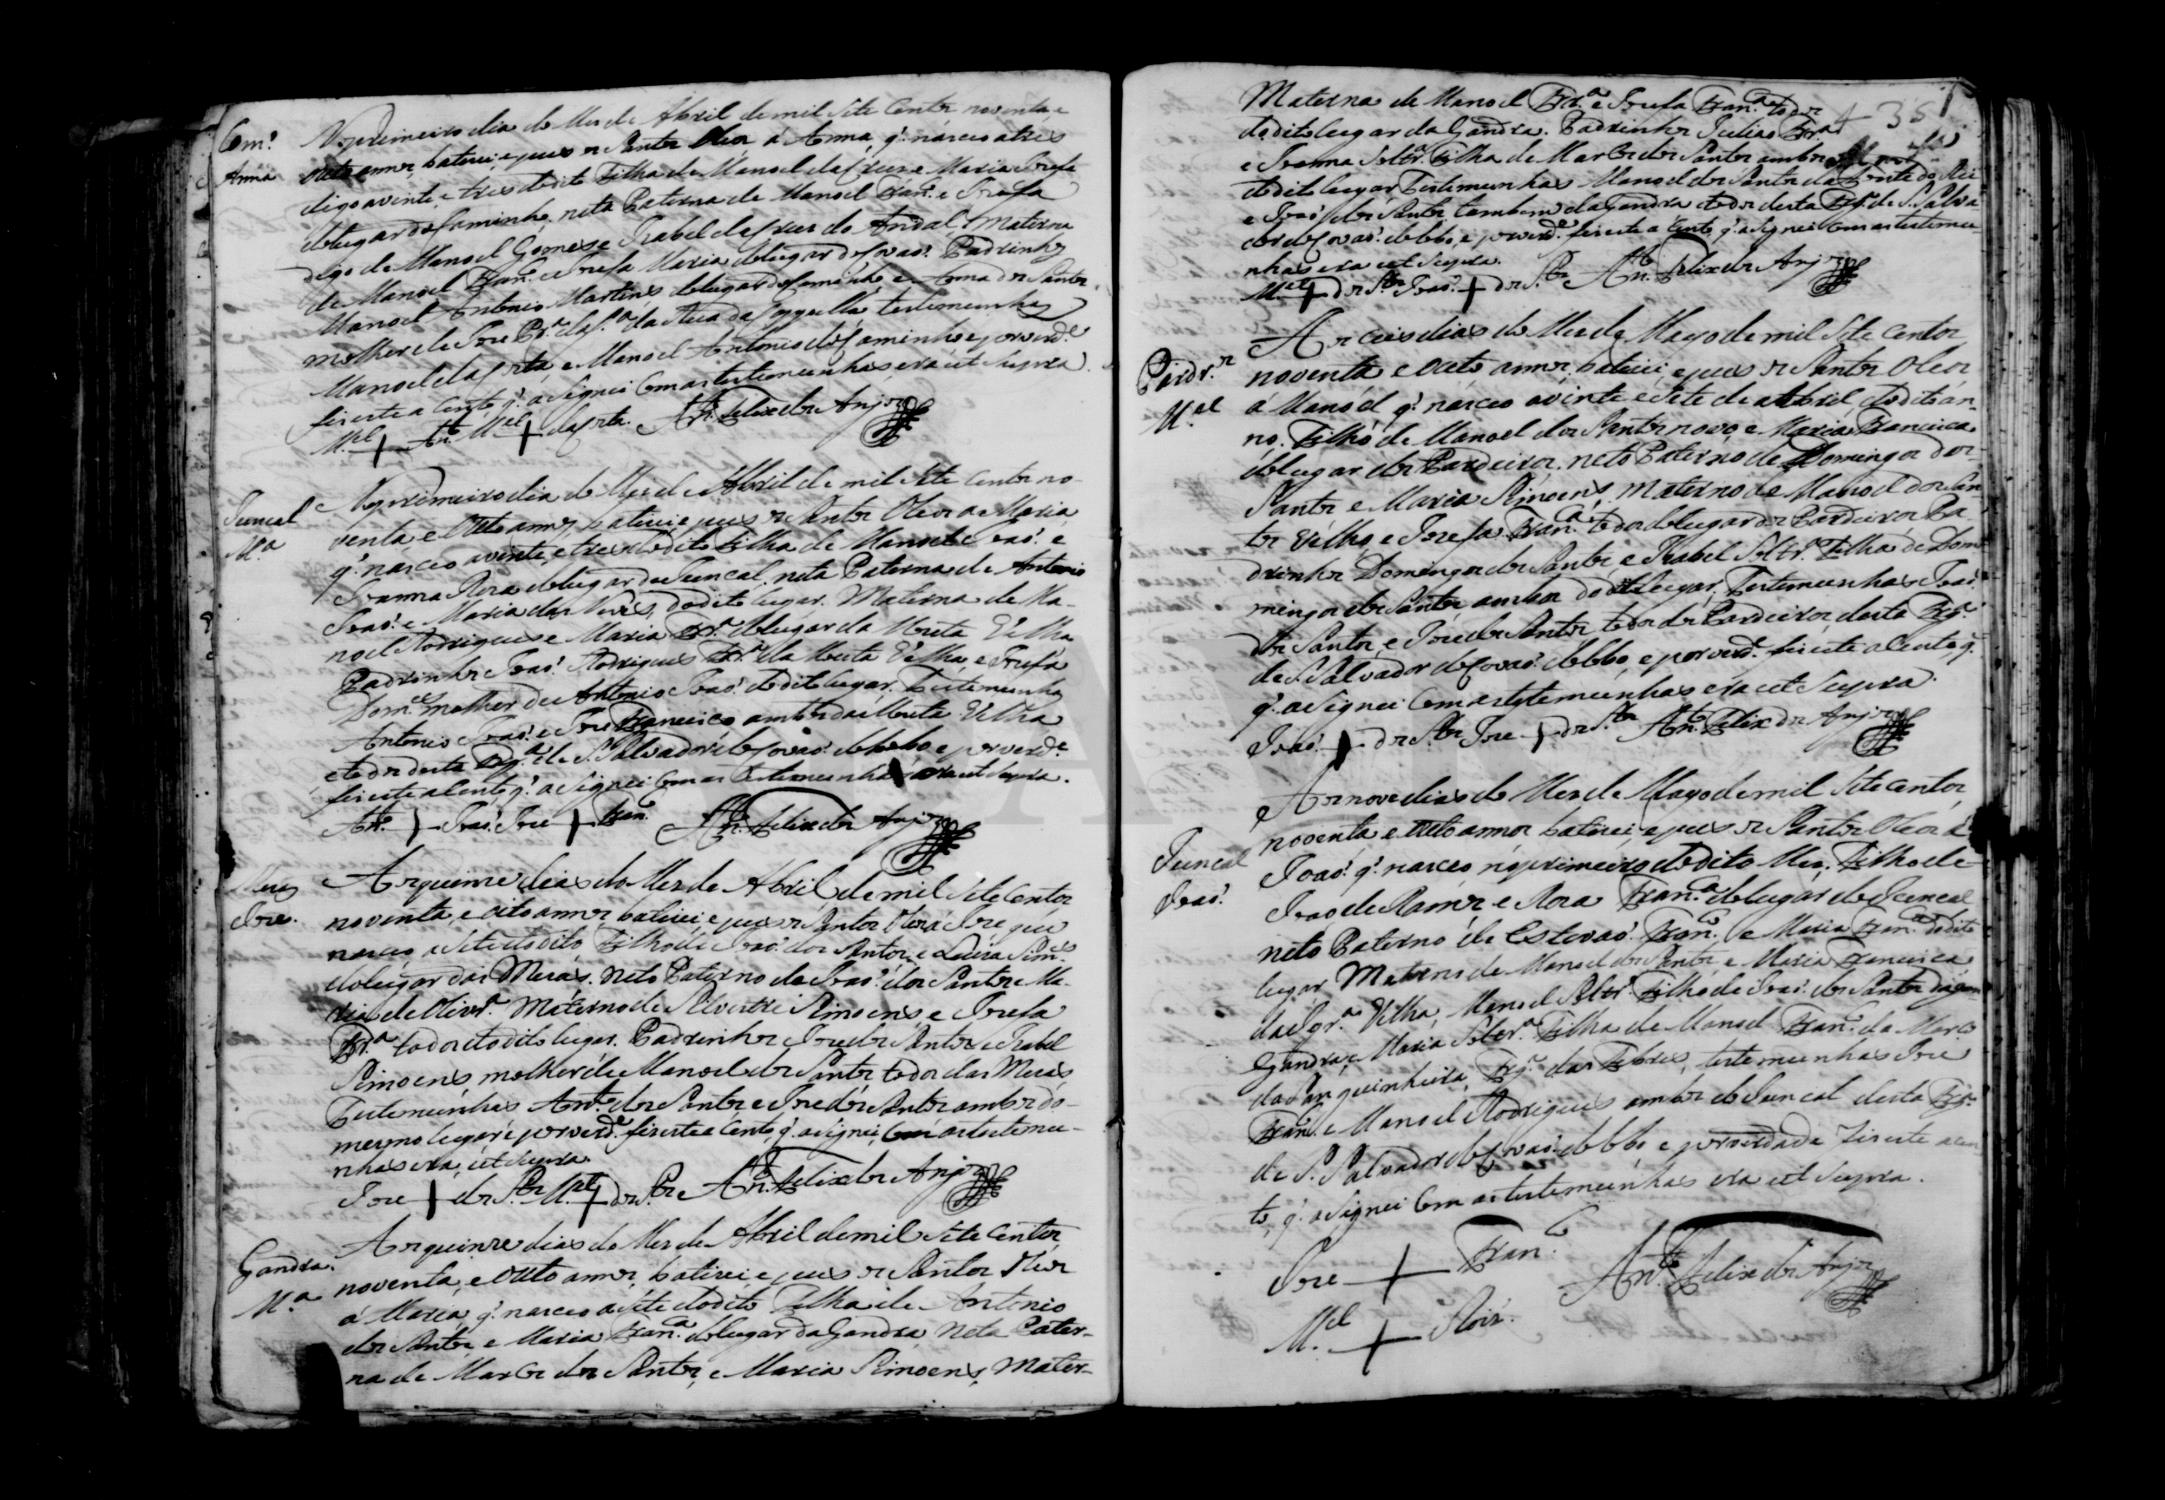 Cam.º
Anna
No primeiro dia do Mes de Abril de mil Sete Centos noventa, e
outo annos baticei, e pus os Santos Oleos a Anna, q. nasceo a tres
digo a vinte, e tres do dito Filha de Manoel da Cruz e Maria Josefa
do lugar do Caminho, neta Paterna de Manoel Fran.co e Josefa
digo de Manoel Gomes e Izabel da Cruz do Andal, Materna
de Manoel Fran.co e Josefa Maria do lugar de Covaõ. Padrinhos
Manoel Antonio Martins do lugar do Caminho, e Anna dos Santos
molher de Joze testemunhas
Manoel da Costa, e Manoel Antonio do Caminho e por verd.e
fis este acento q. asignei Com as testemunhas era ut supra.
M.el + An.to M.el + da Costa. An.to Felix dos Anjos
Juncal
M.ª
No primeiro dia do Mes de Abril de mil Sete Centos no-
venta e outo annos, baticei e pus os Santos Oleos a Maria
q. nasceo a vinte, e tres do dito Filha de Manoel Joaõ. e
Joanna Rosa do lugar do Juncal. neta Paterna de Antonio
Joaõ. e Maria das Neves, do dito lugar. Materna de Ma-
noel Rodrigues e Maria Fr.ª do lugar da Mouta Velha
Padrinhos Joaõ. Rodrigues da Mouta Velha, e Josefa
Dom.es molher de Antonio Joaõ. do dito lugar. Testemunhas
Antonio Joaõ. e Joze Francisco ambos da Mouta Velha
e todos desta Frg.ª de S. Salvador de Covaõ. do lobo e por verd.e
fis este acento q. asignei Com as Testemunhas era ut supra.
An.to + Joaõ. Joze + Fran.co An.to Felix dos Anjos
Mezas
Joze.
Aos quinze dias do Mes de Abril de mil Sete Centos
noventa, e oito annos, baticei, e pus os Santos Oleos á Joze que
nasceo a Sete do dito, Filho de Joaõ. dos Santos, e Luiza Sim.es
do lugar das Mezas. Neto Paterno de Joaõ. dos Santos e Ma-
ria de Olivr.ª Materno de Silvestre Simoens e Josefa
Fr.ª todos do dito lugar. Padrinhos Joze dos Santos e Izabel
Simoens, molher de Manoel dos Santos todos das Mezas,
Testemunhas An.to dos Santos e Joze dos Santos ambos do
mesmo lugar e por verd.e fis este acento, q. asignei, Com as testemu-
nhas era ut supra.
Joze + dos S.tos M.el + dos S.tos An.to Felix dos Anjos
Gandra.
M.ª
Aos quinze dias do Mes de Abril de mil Sete Centos
noventa, e outo annos, baticei, e pus os Santos Oleos
á Maria, q. nasceo a Sete do dito Filha de Antonio
dos Santos, e Maria Fran.ca do lugar da Gandra Neta Pater-
na de Marcos dos Santos, e Maria Simoens, Mater-
Materna de Manoel Fr.ª e Josefa Fran.ca todos
do dito lugar da Gandra. Padrinhos Juliaõ
35
e Joanna Soltr.ª Filha de Marcos dos Santos ambos
do dito lugar, Testemunhas Manoel dos Santos da Fonte do
e Joaõ. dos Santos tambem da Gandra todos desta Frg.ª de S. Salva-
dor de Covaõ. do lobo, e por verd.e fis este acento q. asignei Com as testemu-
nhas era ut supra.
M.el + dos S.tos Joaõ. + dos S.tos An.to Felix dos Anjos
Pardr.os
M.el
Aos seis dias do Mes de Mayo de mil Sete Centos
noventa e outo annos, baticei, e pus os Santos Oleos
á Manoel q. nasceo a vinte e Sete de Abril do dito an-
no. Filho de Manoel dos Santos novo e Maria Francisca
do lugar dos Pardeiros. neto Paterno de Domingos dos
Santos e Maria Simoens, Materno de Manoel dos San-
tos Velho, e Josefa Fran.ca todos do lugar dos Pardeiros Pa-
drinhos Domingos dos Santos e Izabel Soltr.ª Filha de Dom-
mingos dos Santos ambos do dito lugar. Testemunhas Joaõ.
dos Santos, e Joze dos Santos todos dos Pardeiros, desta Frg.ª
de S. Salvador de Covaõ. do lobo, e por verd.e fis este acento, q.
q. asignei Com as testemunhas era ut supra.
Joaõ. + dos S.tos Joze + dos S.tos An.to Felix dos Anjos
Juncal
Joaõ.
Aos nove dias do Mes de Mayo de mil Sete Centos
noventa, e outo annos baticei, e pus os Santos Oleos á
Joaõ. q. nasceo no primeiro do dito Mes, Filho de
Joaõ de Ramos, e Rosa Fran.ca do lugar do Juncal
neto Paterno de Estevaõ. Fran.co e Maria Fran.ca do dito
lugar Materno de Manoel dos Santos, e Maria Francisca
da Igr.ª Velha, Manoel Soltr.º Filho de Joaõ. dos Santos da
Gandra, e Maria Soltr.ª Filha de Manoel Fran.co da
da Sanguinheira, Frg.ª das Febres, testemunhas Joze
Fran.co e Manoel Rodrigues ambos do Juncal desta Frg.ª
de S. Salvador de Covaõ. do lobo, e por verdade fis este acen-
to, q. asignei Com as testemunhas era ut supra.
Joze + Fran.co
An.to Felix dos Anjos
M.el + Roiz.